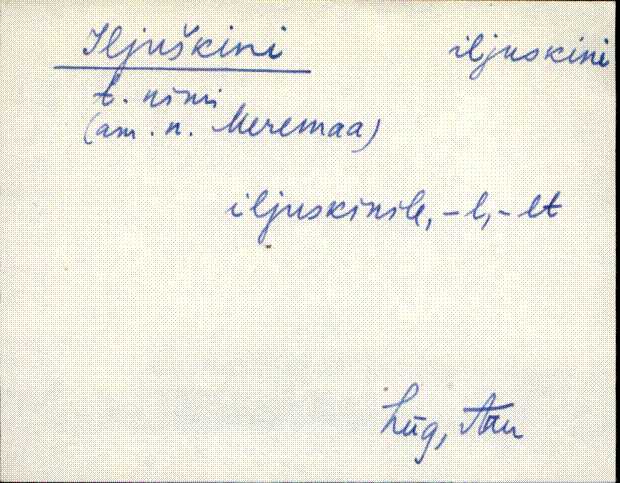 Iljuškini iljuskini
t. nimi
(am. n. Meremaa)
iljuskinile, -l, -lt
Lüg, Aru